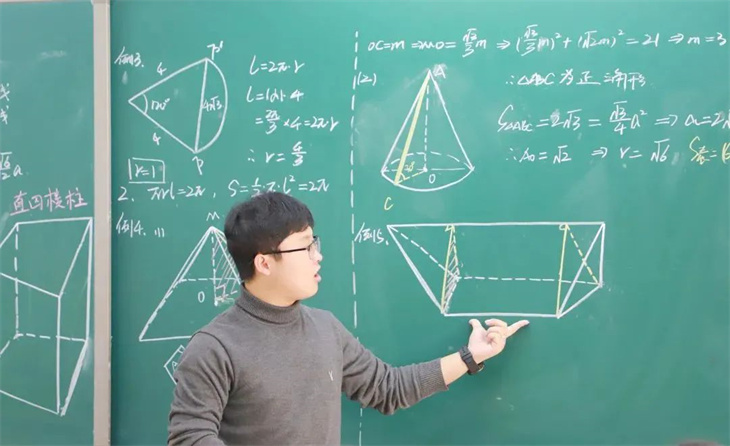 直四棱柱
例3.
P'
4
120°
4√3
4
P
l=2π·r
l=|α|·4
=2π/3×4=2π·r
∴r=4/3
r=1
2. πrl=2π, S=½·π·l²=2π
例4.
M
O
OC=m ⇒MO=√3/3m ⇒(√3/3m)²+(√2m)²=21 ⇒m=3
(2)
A
O
C
∴△ABC为正三角形
S△ABC=2√3=√3/4a² ⇒a=2√
∴AO=√2 ⇒r=√6
例5.